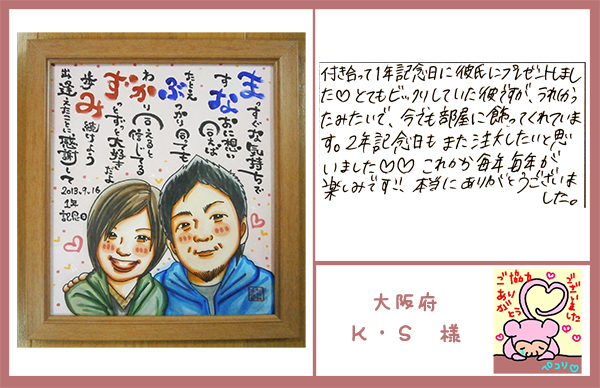 まっすぐな気持ちで
すなおに想い
たとえ
ぶつかっても
わかり合えると信じてる
ずっとずっと大好きだよ
歩み続けよう
出逢えたことに感謝して
2013.9.16
1年
記念日
付き合って1年記念日に彼氏にプレゼントしまし
た♡とてもビックリしていた彼ですが、うれしかっ
たみたいで、今でも部屋に飾ってくれていま
す。2年記念日もまた注文したいと思
いました♡♡ これから毎年毎年が
楽しみです!! 本当にありがとうございま
した。
大阪府
K・S 様
ご協力
ありがとう
ございました
ペコリ